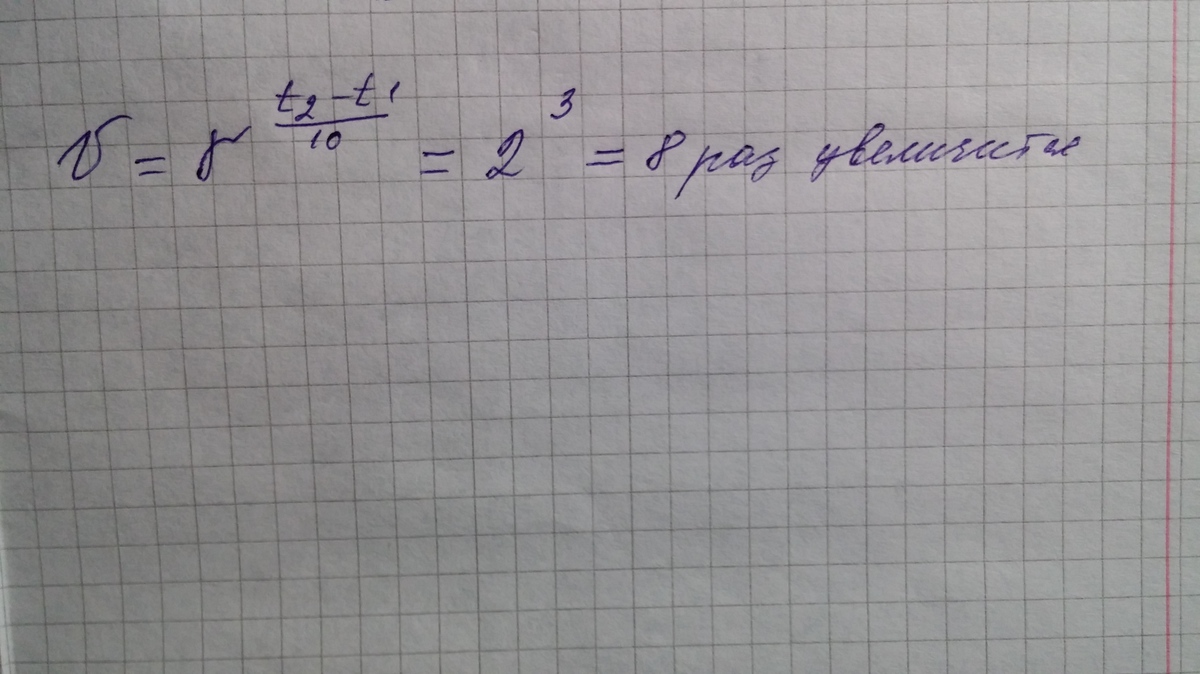 v = γ^((t₂-t₁)/10) = 2³ = 8 раз увеличится